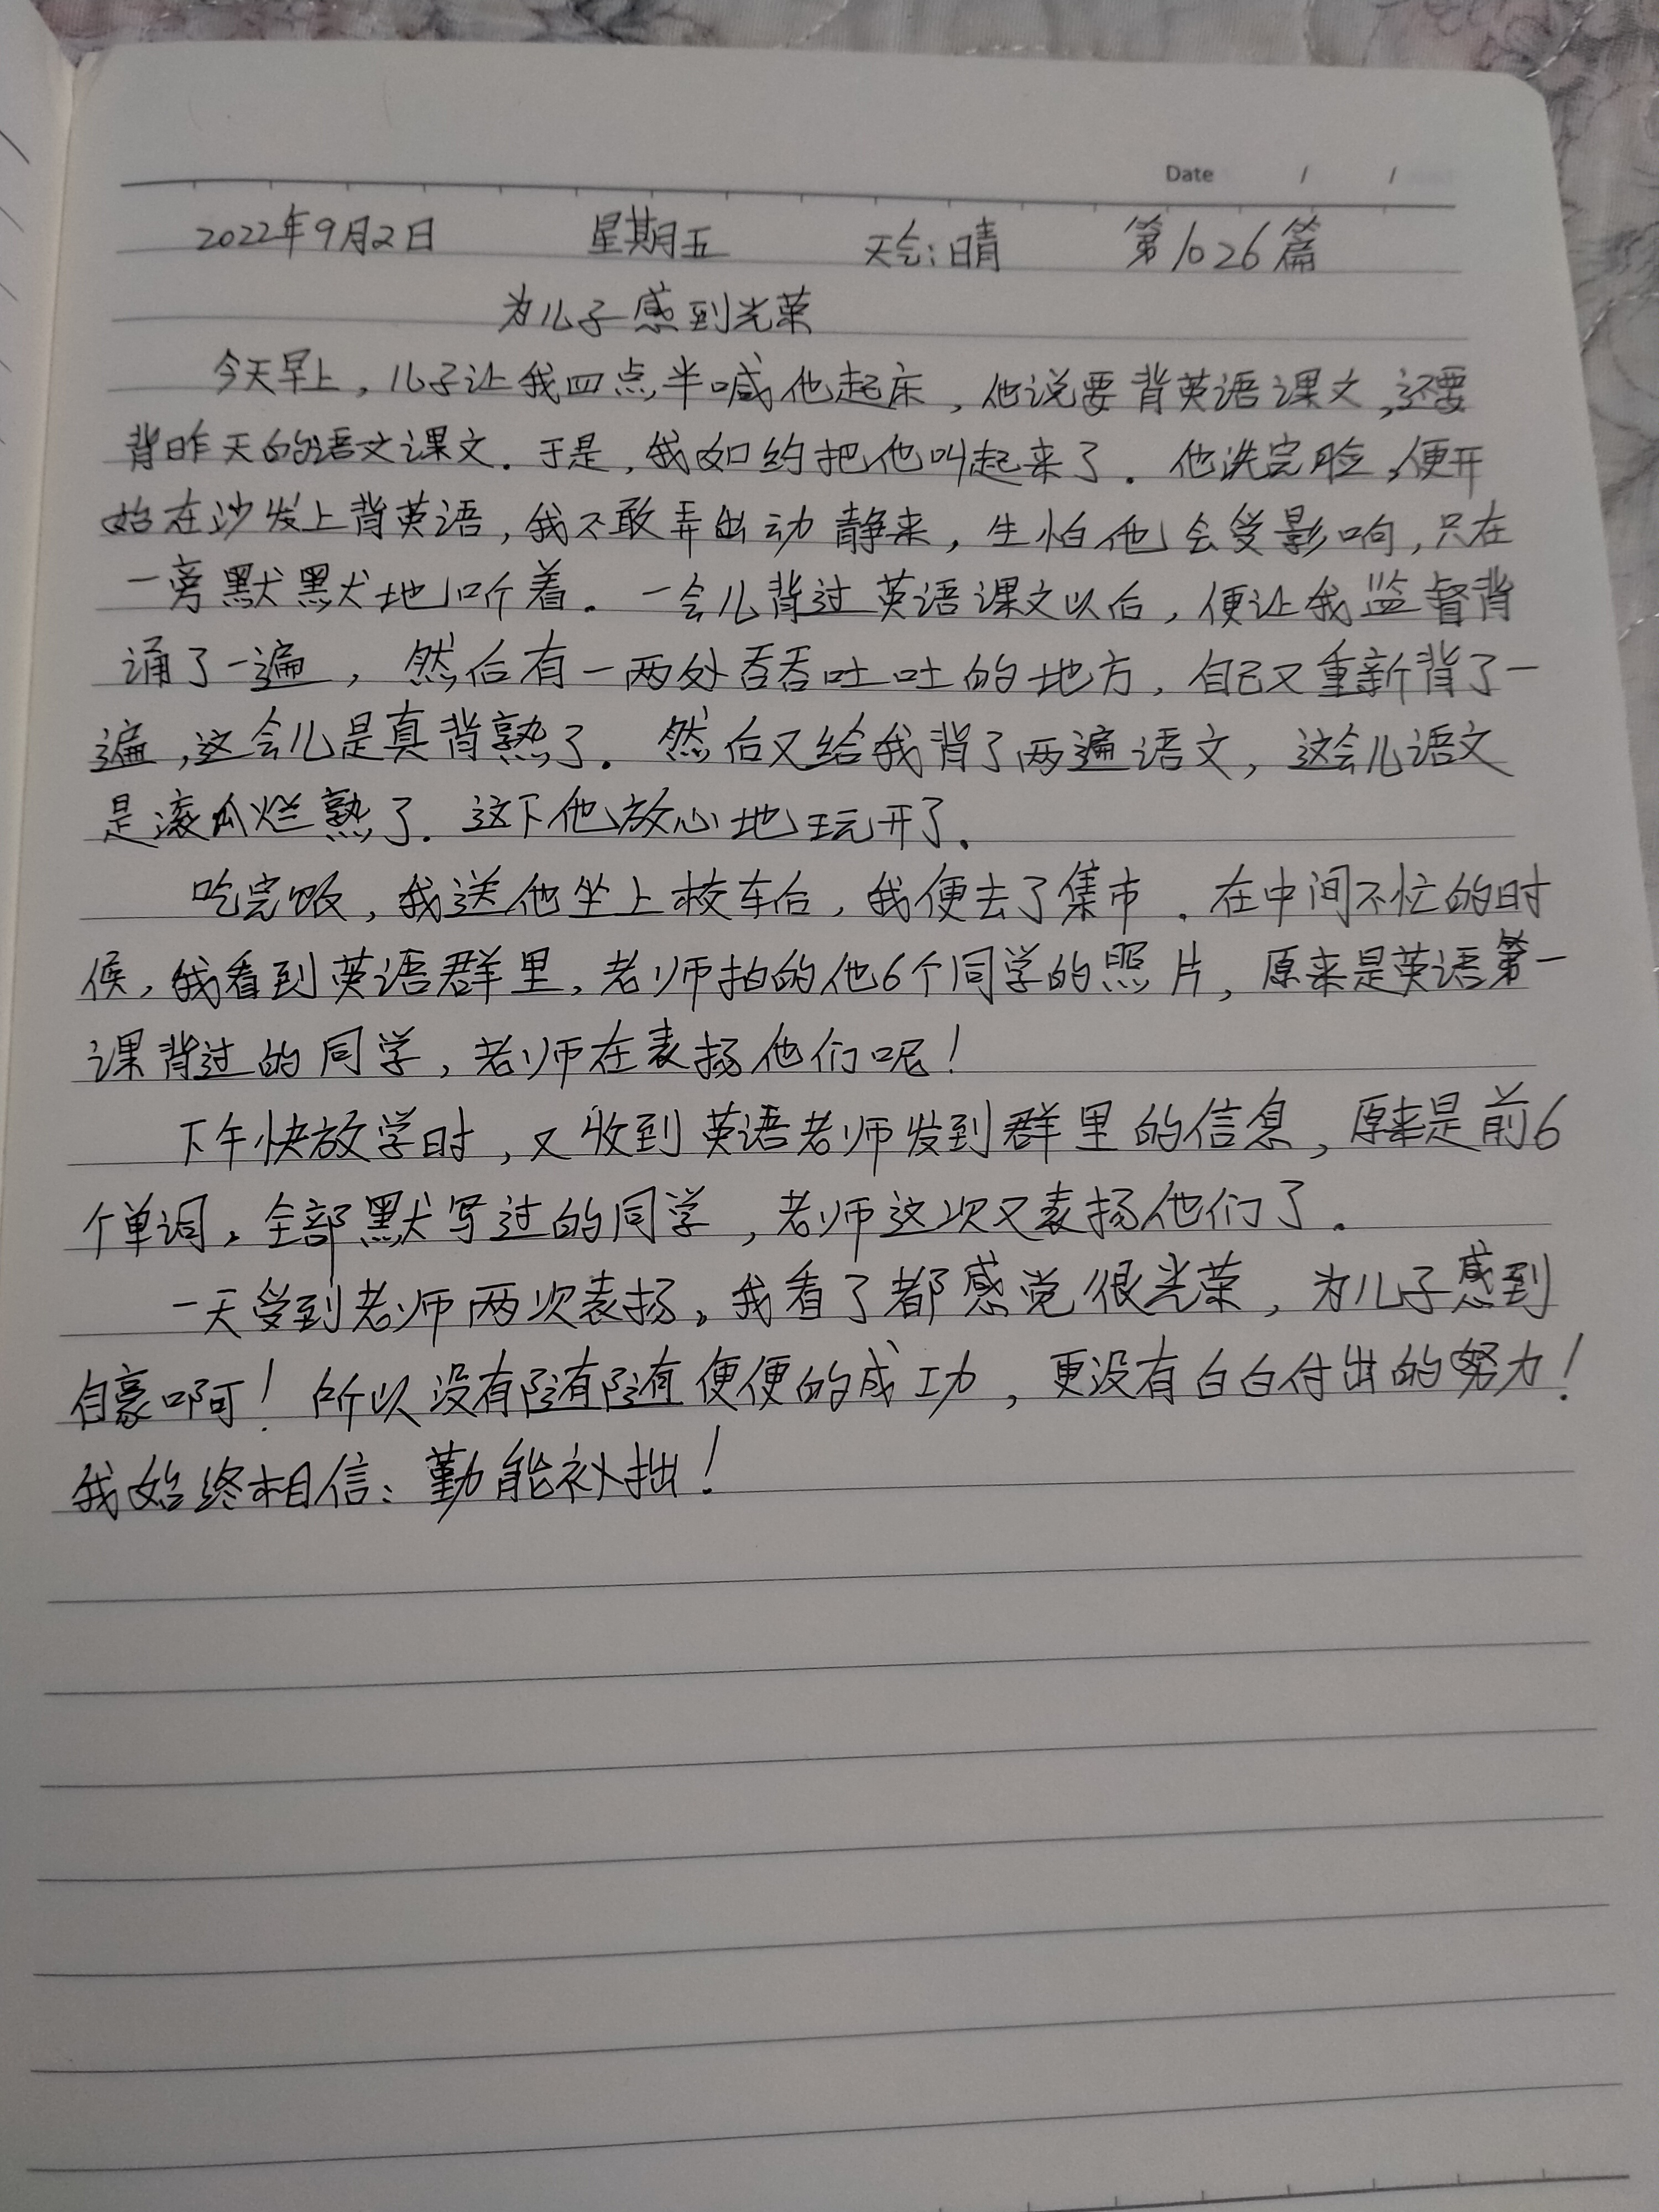 Date / /
2022年9月2日 星期五 天气:晴 第1026篇
为儿子感到光荣
今天早上，儿子让我四点半喊他起床，他说要背英语课文，还要
背昨天的语文课文。于是，我如约把他叫起来了。他洗完脸，便开
始在沙发上背英语，我不敢弄出动静来，生怕他会受影响，只在
一旁默默地听着。一会儿背过英语课文以后，便让我监督背
诵了一遍，然后有一两处吞吞吐吐的地方，自己又重新背了一
遍，这会儿是真背熟了。然后又给我背了两遍语文，这会儿语文
是滚瓜烂熟了。这下他放心地玩开了。
吃完饭，我送他坐上校车后，我便去了集市。在中间不忙的时
候，我看到英语群里，老师拍的他6个同学的照片，原来是英语第一
课背过的同学，老师在表扬他们呢！
下午快放学时，又收到英语老师发到群里的信息，原来是前6
个单词，全部默写过的同学，老师这次又表扬他们了。
一天受到老师两次表扬，我看了都感觉很光荣，为儿子感到
自豪啊！所以没有随随便便的成功，更没有白白付出的努力！
我始终相信：勤能补拙！